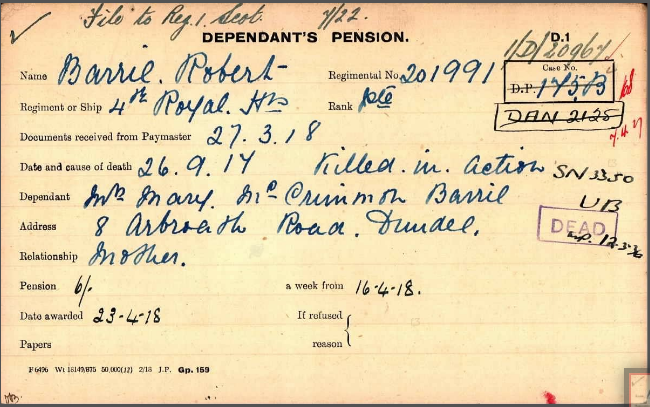 File to Reg. 1. Scot. 7/22.
DEPENDANT'S PENSION.
D.1
1/D/20967/
Name Barril. Robert Regimental No. 201991
Case No.
D.P. 1758
DAN 2125
Regiment or Ship 4th Royal. Hrs Rank Pte
Documents received from Paymaster 27.3.18
Date and cause of death 26.9.17 Killed. in. action
SN 3350
Dependant Mrs Mary. Mc Crimmon Barril
UB
Address 8 Arbroath Road. Dundee.
DEAD
12-3-36
Relationship Mother.
Pension 6/- a week from 16-4-18.
Date awarded 23-4-18 If refused
Papers reason
F 6496 Wt 16149/875 50,000(12) 2/18 J.P. Gp. 159